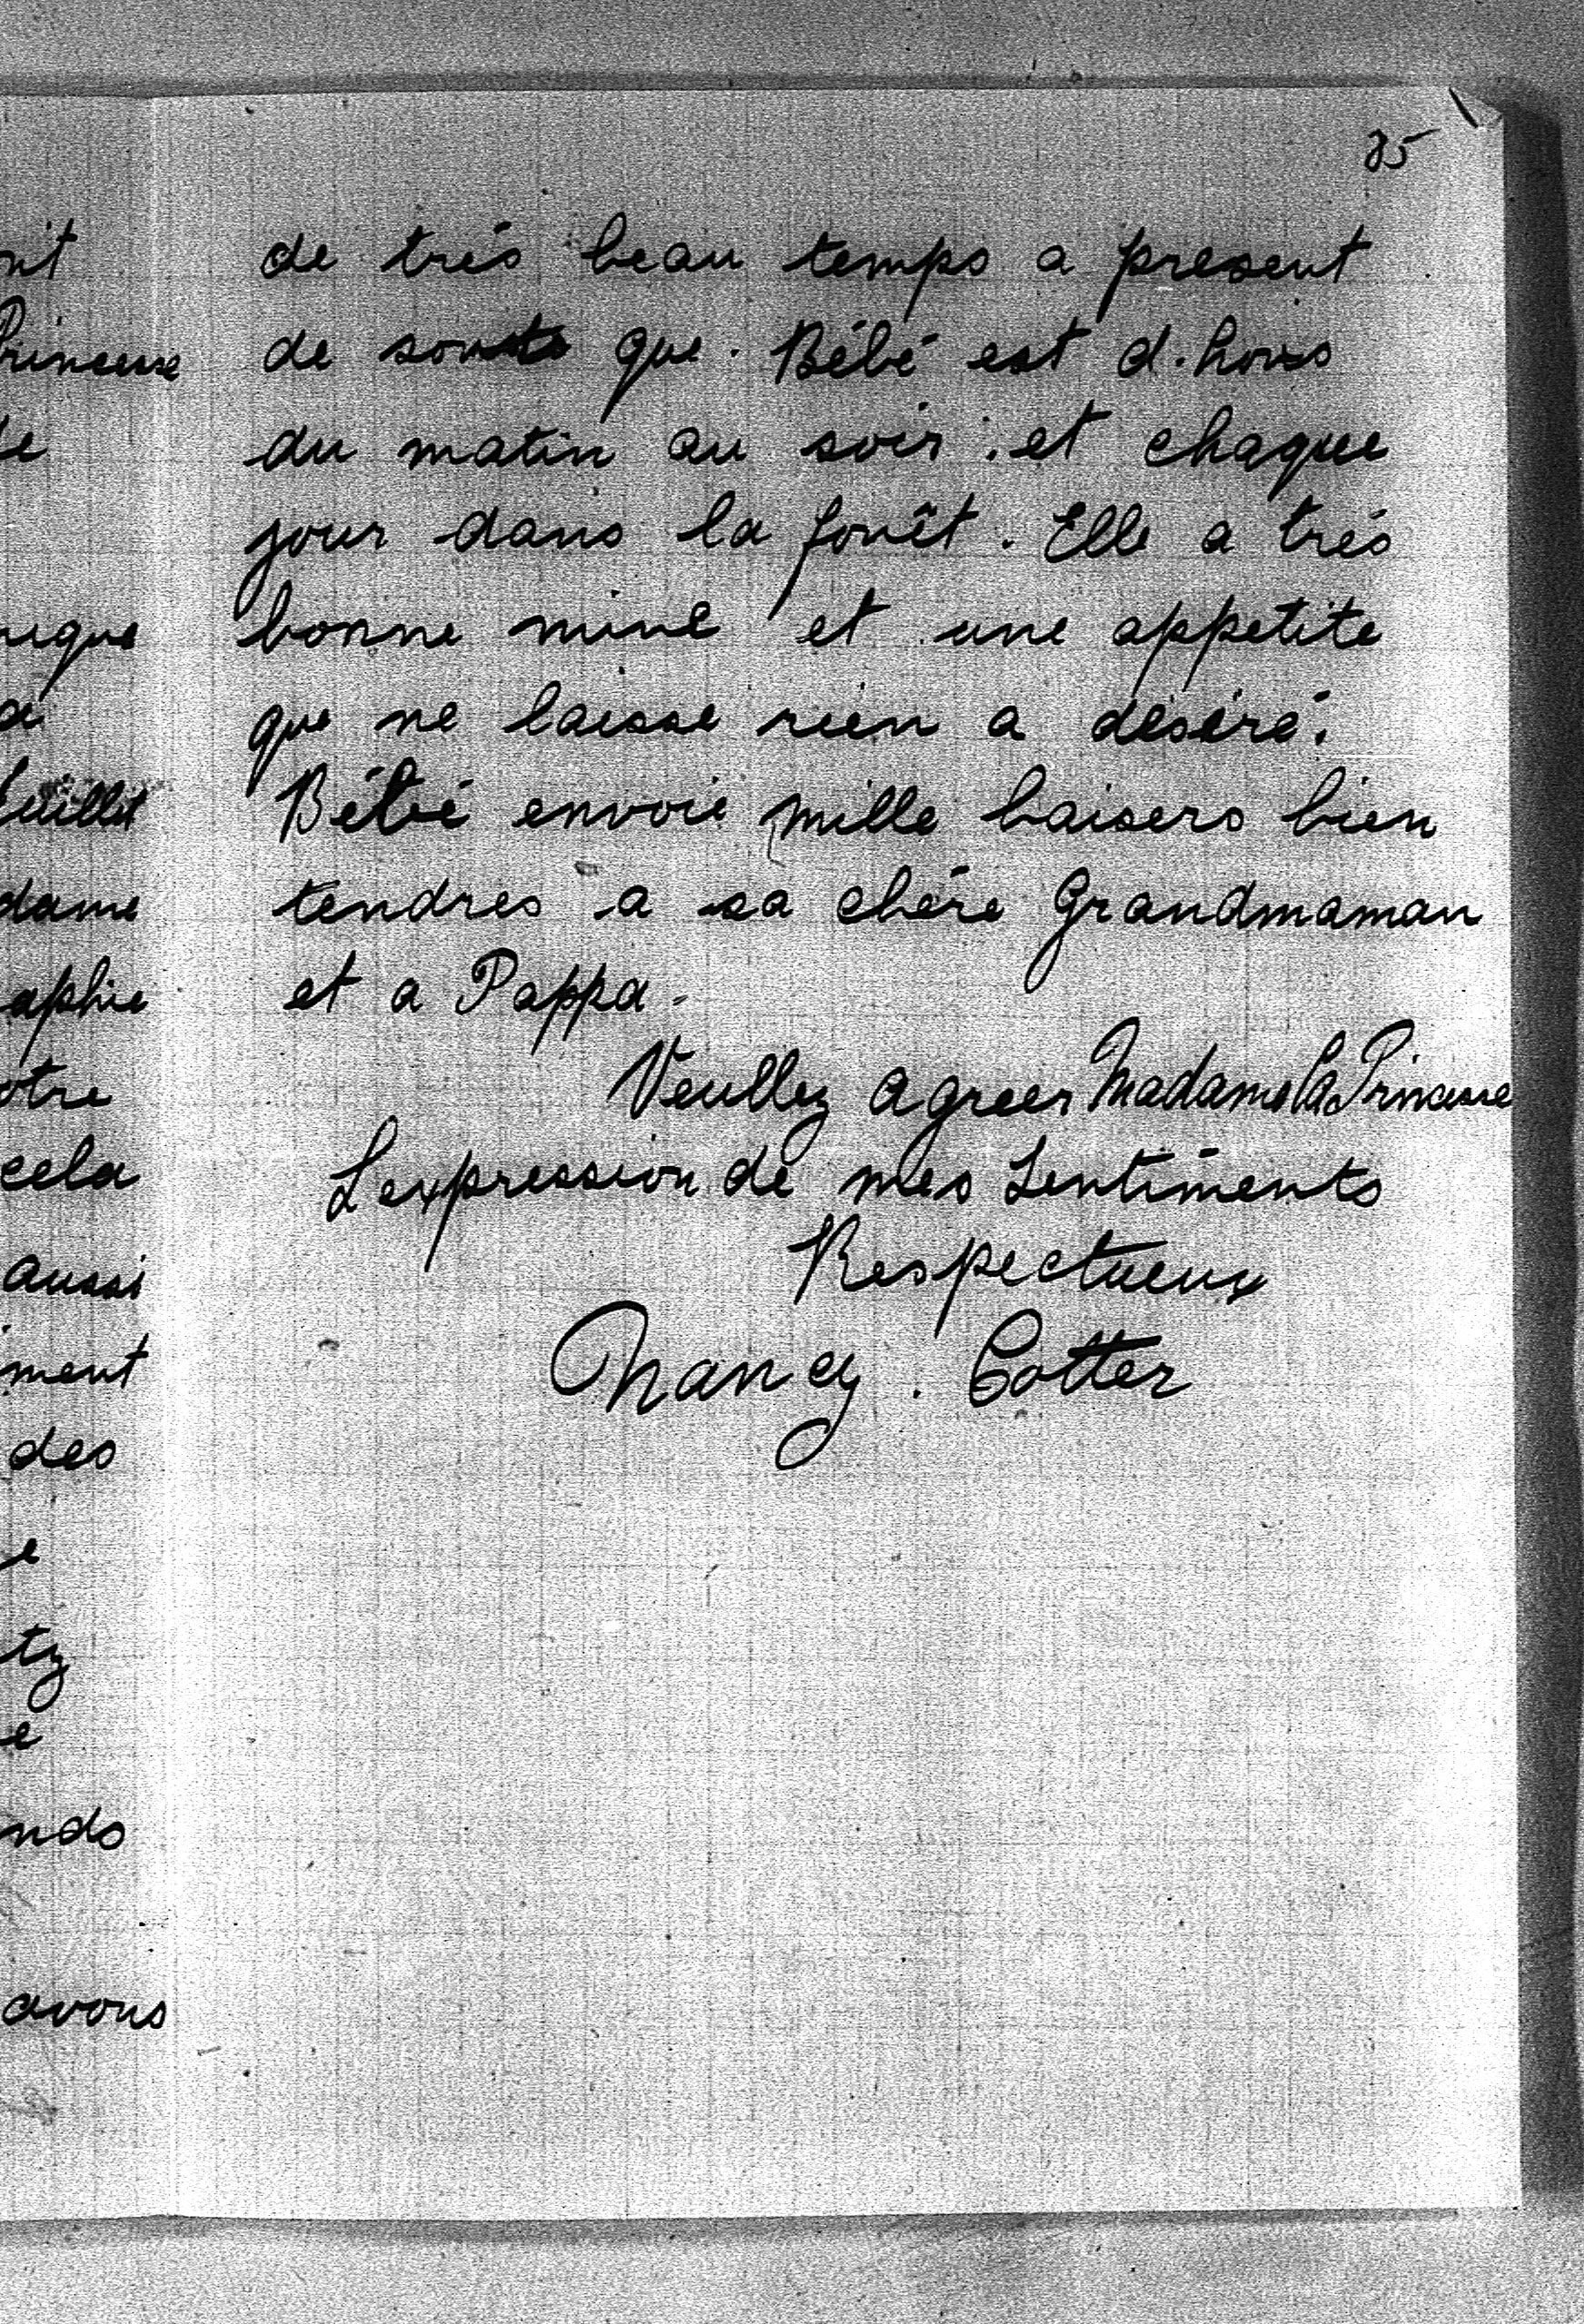 85
de très beau temps a present
de sorte que. Bébé est d.hors
du matin au soir. et chaque
jour dans la forêt. Elle a très
bonne mine et une appetite
que ne laisse rien a désiré.
Bébé envoie mille baisers bien
tendres a sa chère Grandmaman
et a Pappa.
Veullez agreer Madame la Princesse
L'expression de mes Sentiments
Respectueux
Nancy. Cotter
nt
Princesse
de
a
Juillet
dame
aphie
otre
cela
aussi
ment
des
e
tz
e
nds
avons